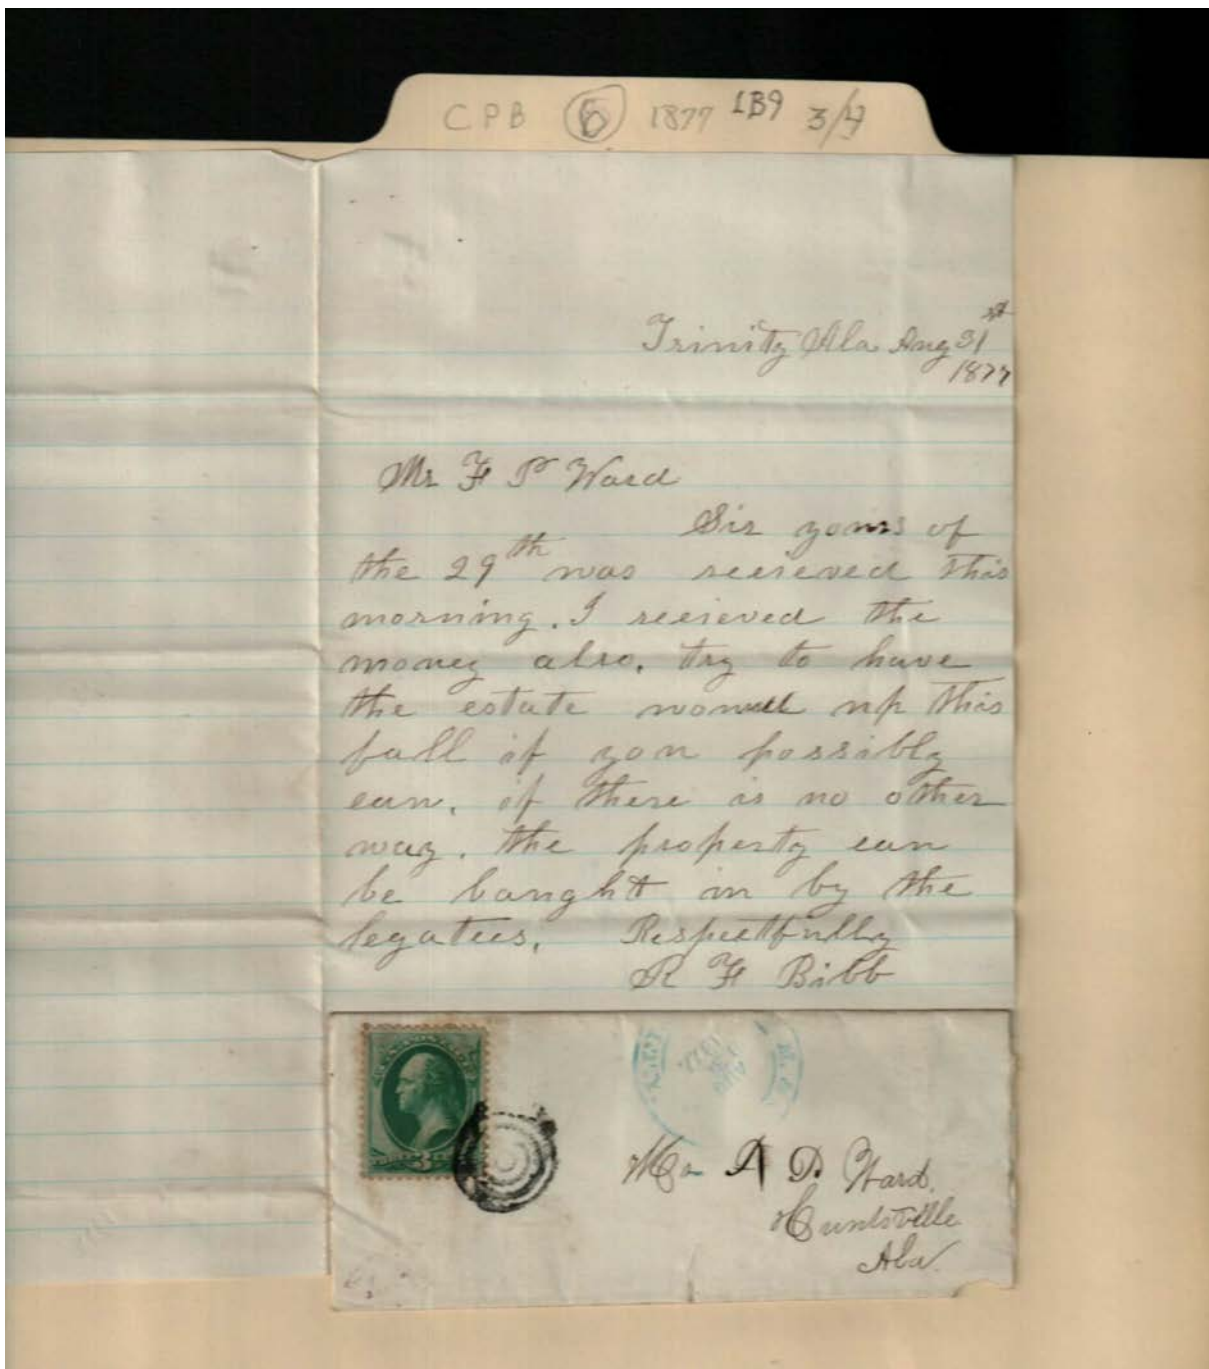 CPB 6 1877 1B9 3/4
Trinity Ala Aug 31st
1877
Mr F P Ward
Sir yours of
the 29th was recieved this
morning. I recieved the
money also. try to have
the estate wound up this
fall if you possibly
can. if there is no other
way. the property can
be baught in by the
legatees. Respectfully
R F Bibb
3
1877
D. Ward.
Huntsville
Ala.